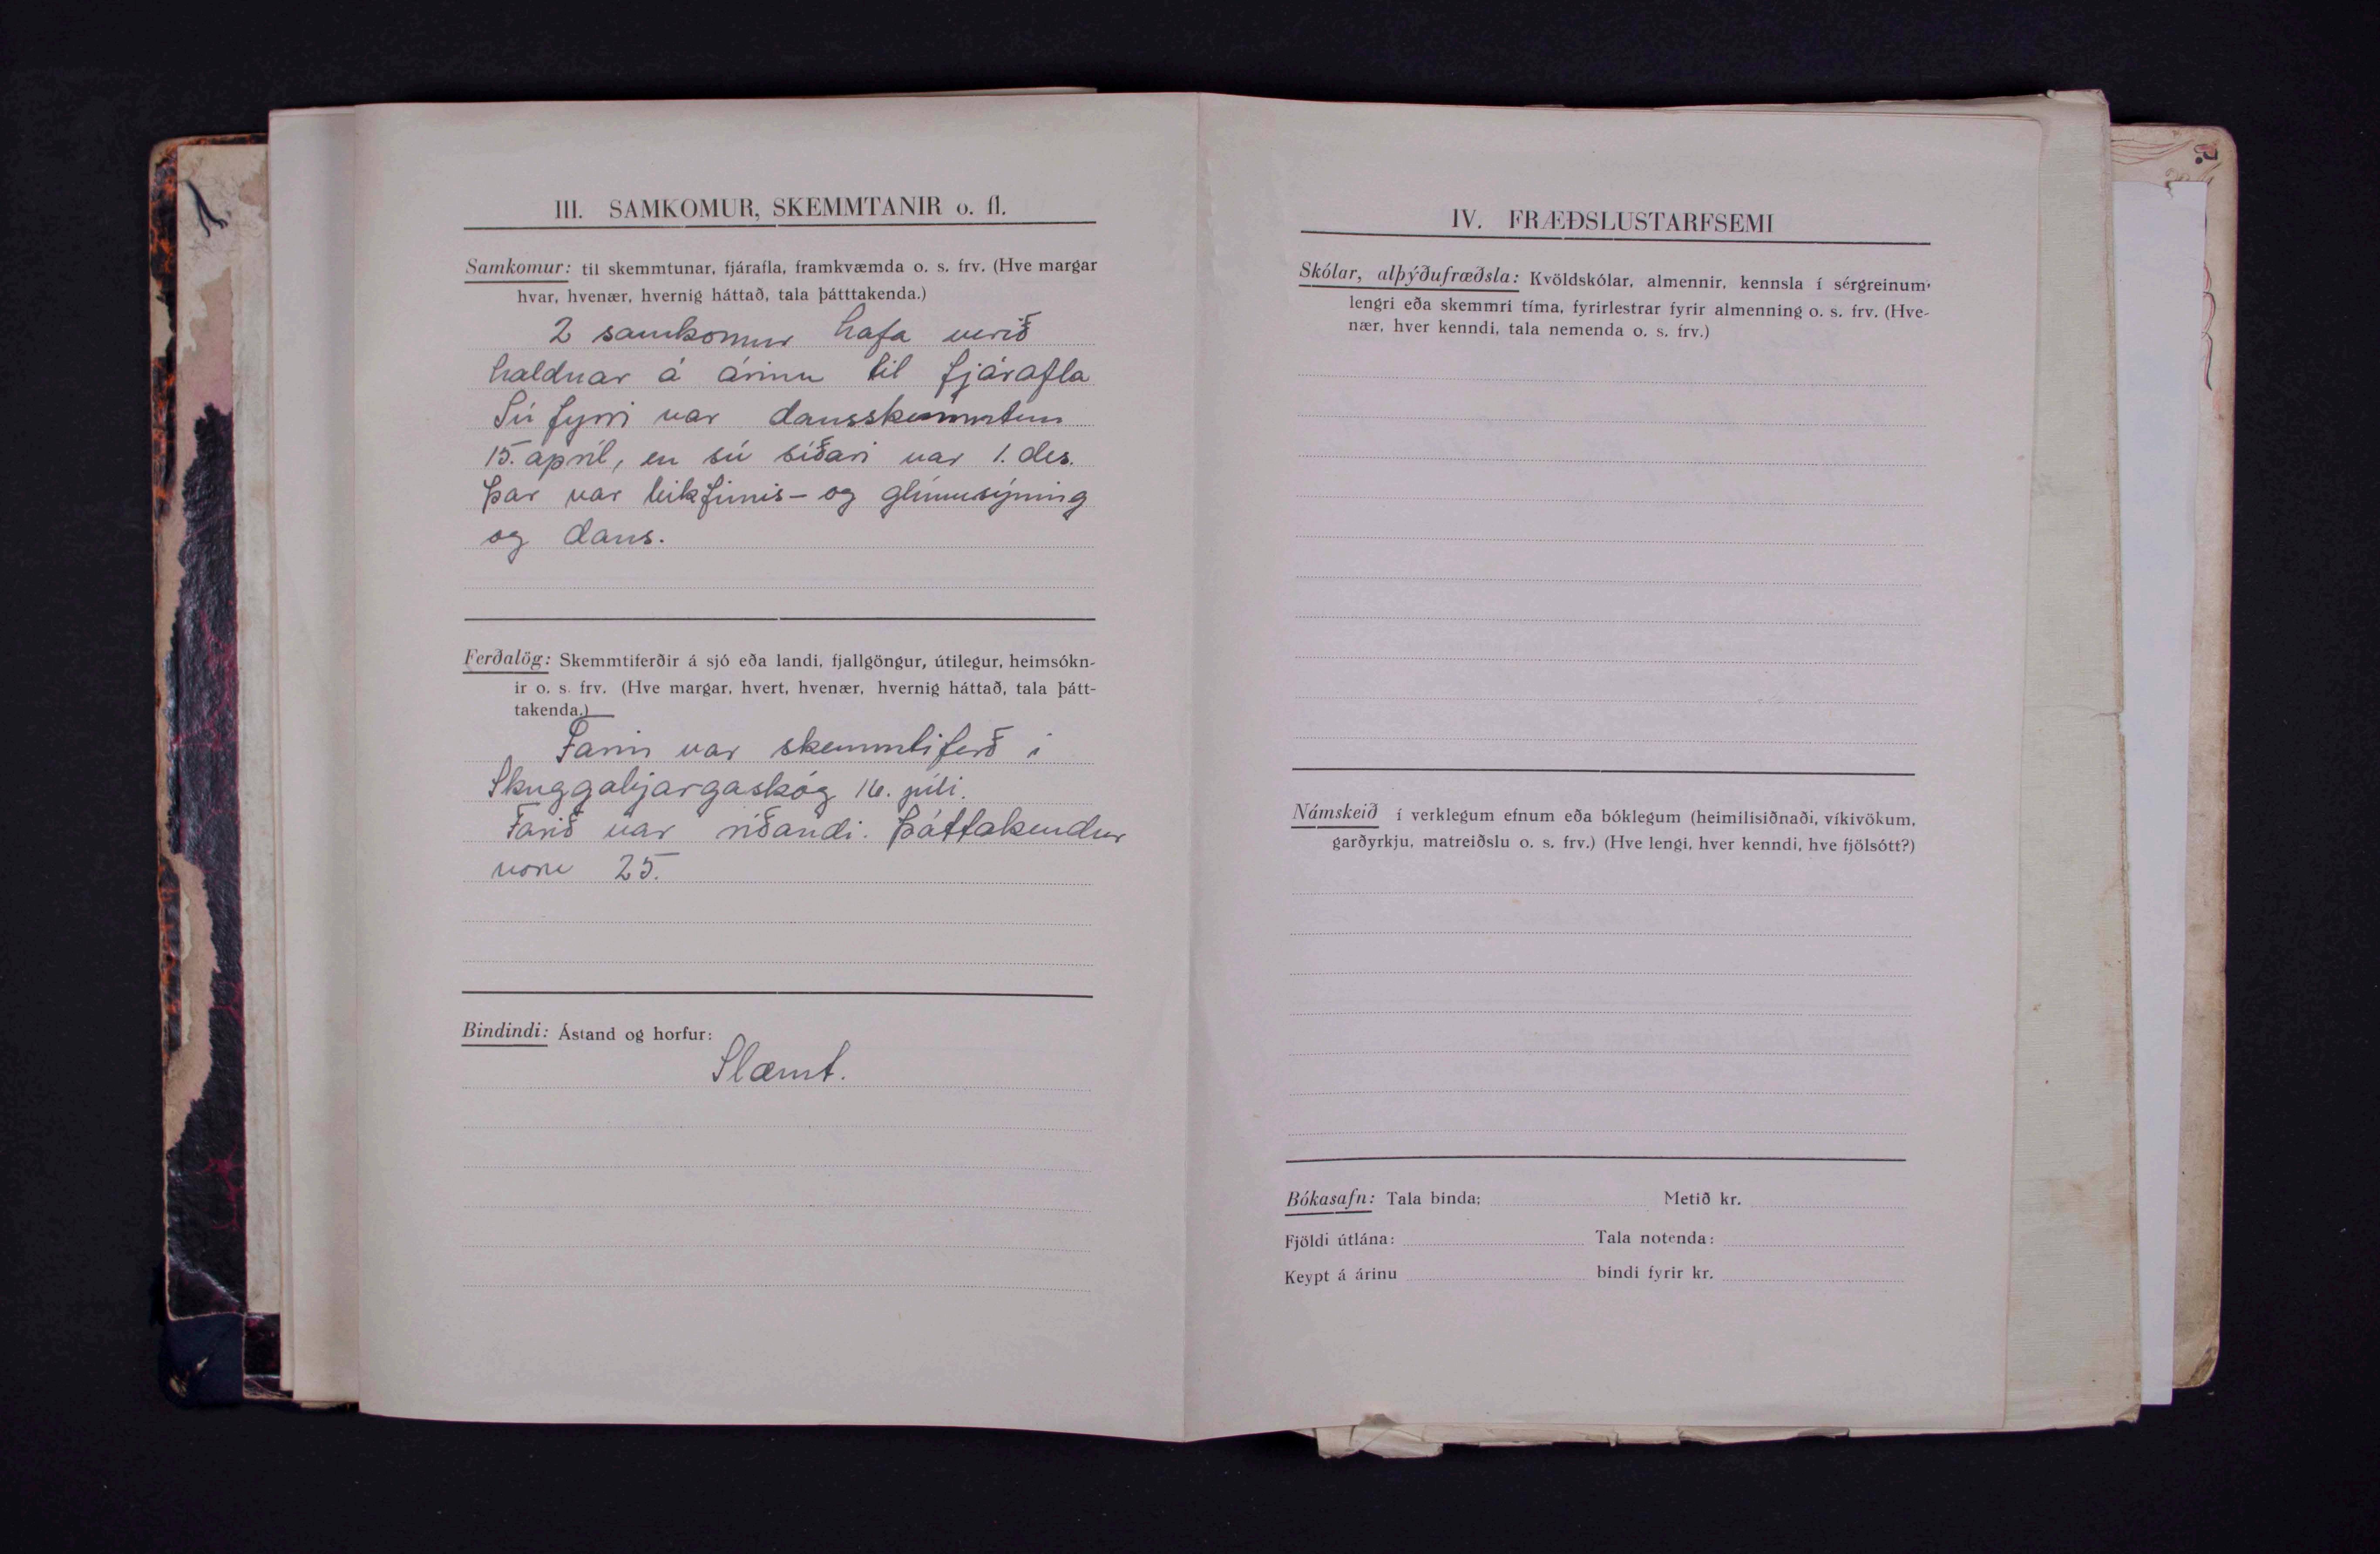 III. SAMKOMUR, SKEMMTANIR o. fl.
Samkomur: til skemmtunar, fjárafla, framkvæmda o. s. frv. (Hve margar
hvar, hvenær, hvernig háttað, tala þátttakenda.)
2 samkomur hafa verið
haldnar á árinu til fjárafla
Sú fyrri var dansskemmtun
15. apríl, en sú síðari var 1. des.
Þar var leikfimis- og glímusýning
og dans.
Ferðalög: Skemmtiferðir á sjó eða landi, fjallgöngur, útilegur, heimsókn-
ir o. s. frv. (Hve margar, hvert, hvenær, hvernig háttað, tala þátt-
takenda.)
Farin var skemmtiferð í
Skuggabjargaskóg 16. júlí.
Farið var ríðandi. Þáttakendur
voru 25.
Bindindi: Ástand og horfur:
Slæmt.
IV. FRÆÐSLUSTARFSEMI
Skólar, alþýðufræðsla: Kvöldskólar, almennir, kennsla í sérgreinum,
lengri eða skemmri tíma, fyrirlestrar fyrir almenning o. s. frv. (Hve-
nær, hver kenndi, tala nemenda o. s. frv.)
Námskeið í verklegum efnum eða bóklegum (heimilisiðnaði, víkivökum,
garðyrkju, matreiðslu o. s. frv.) (Hve lengi, hver kenndi, hve fjölsótt?)
Bókasafn: Tala binda; Metið kr.
Fjöldi útlána: Tala notenda:
Keypt á árinu bindi fyrir kr.